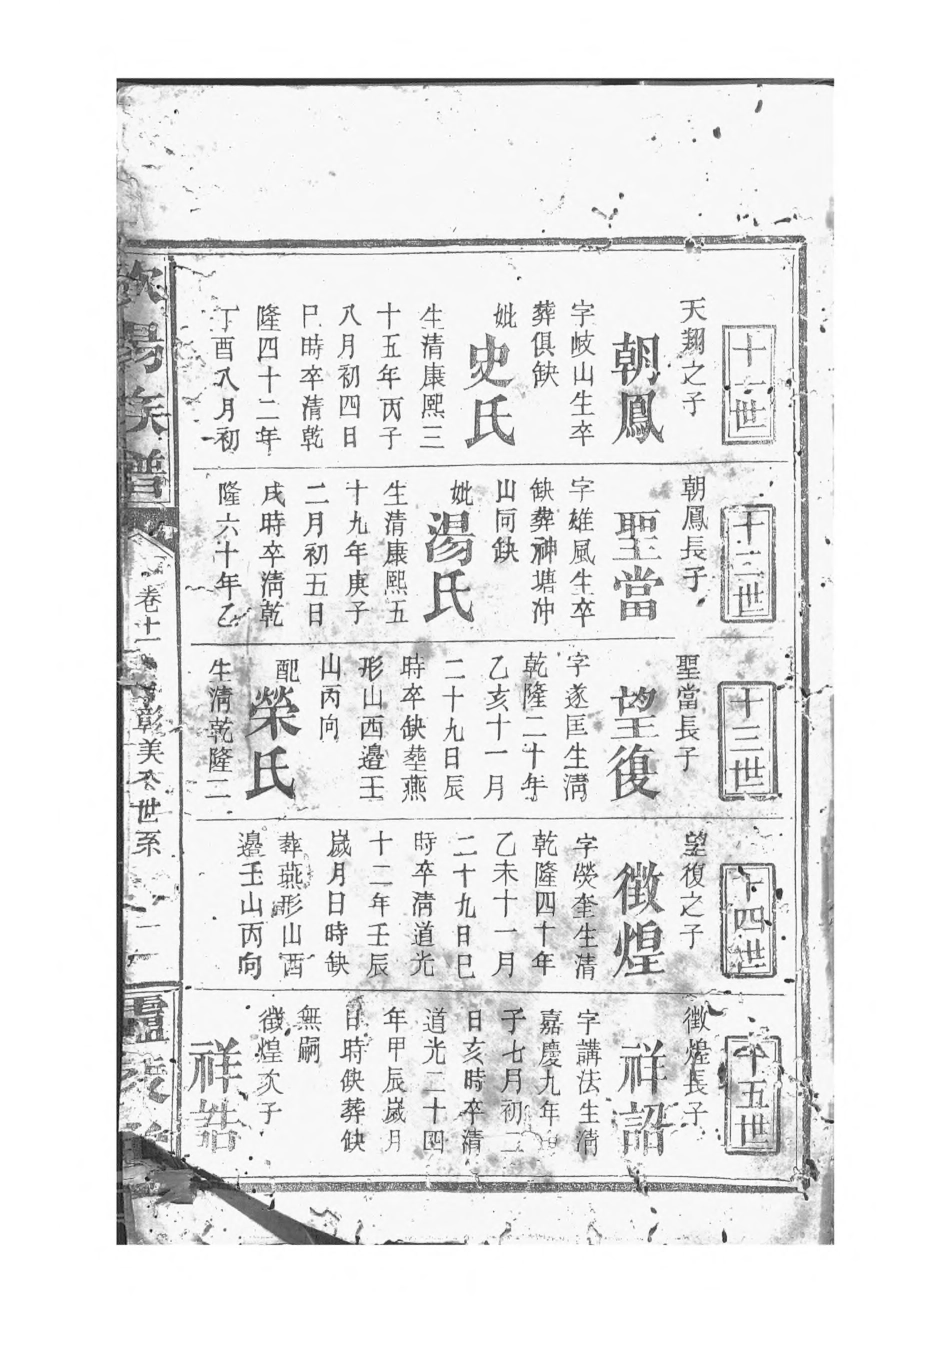 十一世
天翔之子
朝鳳
字岐山生卒
葬俱缺
妣
史氏
生清康熙三
十五年丙子
八月初四日
巳時卒清乾
隆四十二年
丁酉八月初
十二世
朝鳳長子
聖當
字雄風生卒
缺葬神塘沖
山同缺
妣
湯氏
生清康熙五
十九年庚子
二月初五日
戌時卒清乾
隆六十年乙
十三世
聖當長子
望復
字遂匡生清
乾隆二十年
乙亥十一月
二十九日辰
時卒缺塟燕
形山西邊壬
山丙向
配
榮氏
生清乾隆二
十四世
望復之子
徵煌
字熒奎生清
乾隆四十年
乙未十一月
二十九日巳
時卒清道光
十二年壬辰
歲月日時缺
葬燕形山西
邊壬山丙向
十五世
徵煌長子
祥詔
字講法生清
嘉慶九年
子七月初二
日亥時卒清
道光二十四
年甲辰歲月
日時缺葬缺
無嗣
徵煌次子
祥誥
歐陽族譜
卷十一
彰美公世系